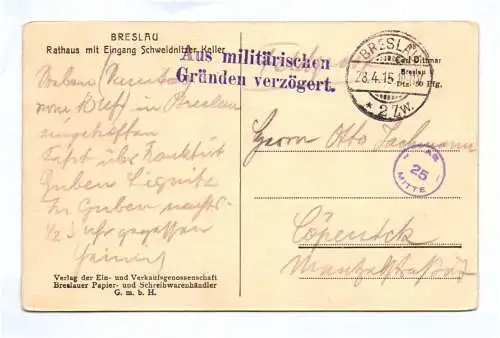 BRESLAU
Rathaus mit Eingang Schweidnitzer Keller
Aus militärischen
Gründen verzögert.
BRESLAU
28.4.15
* 2 Zw.
Carl Dittmar
Breslau
50 Pfg.
in Breslau
eingetroffen
Fahrt über Frankfurt
Guben Liegnitz
In Guben nachts
1/2 3 Uhr gegessen
Herrn Otto
25
MITTE
Cöpenick
Verlag der Ein- und Verkaufsgenossenschaft
Breslauer Papier- und Schreibwarenhändler
G. m. b. H.